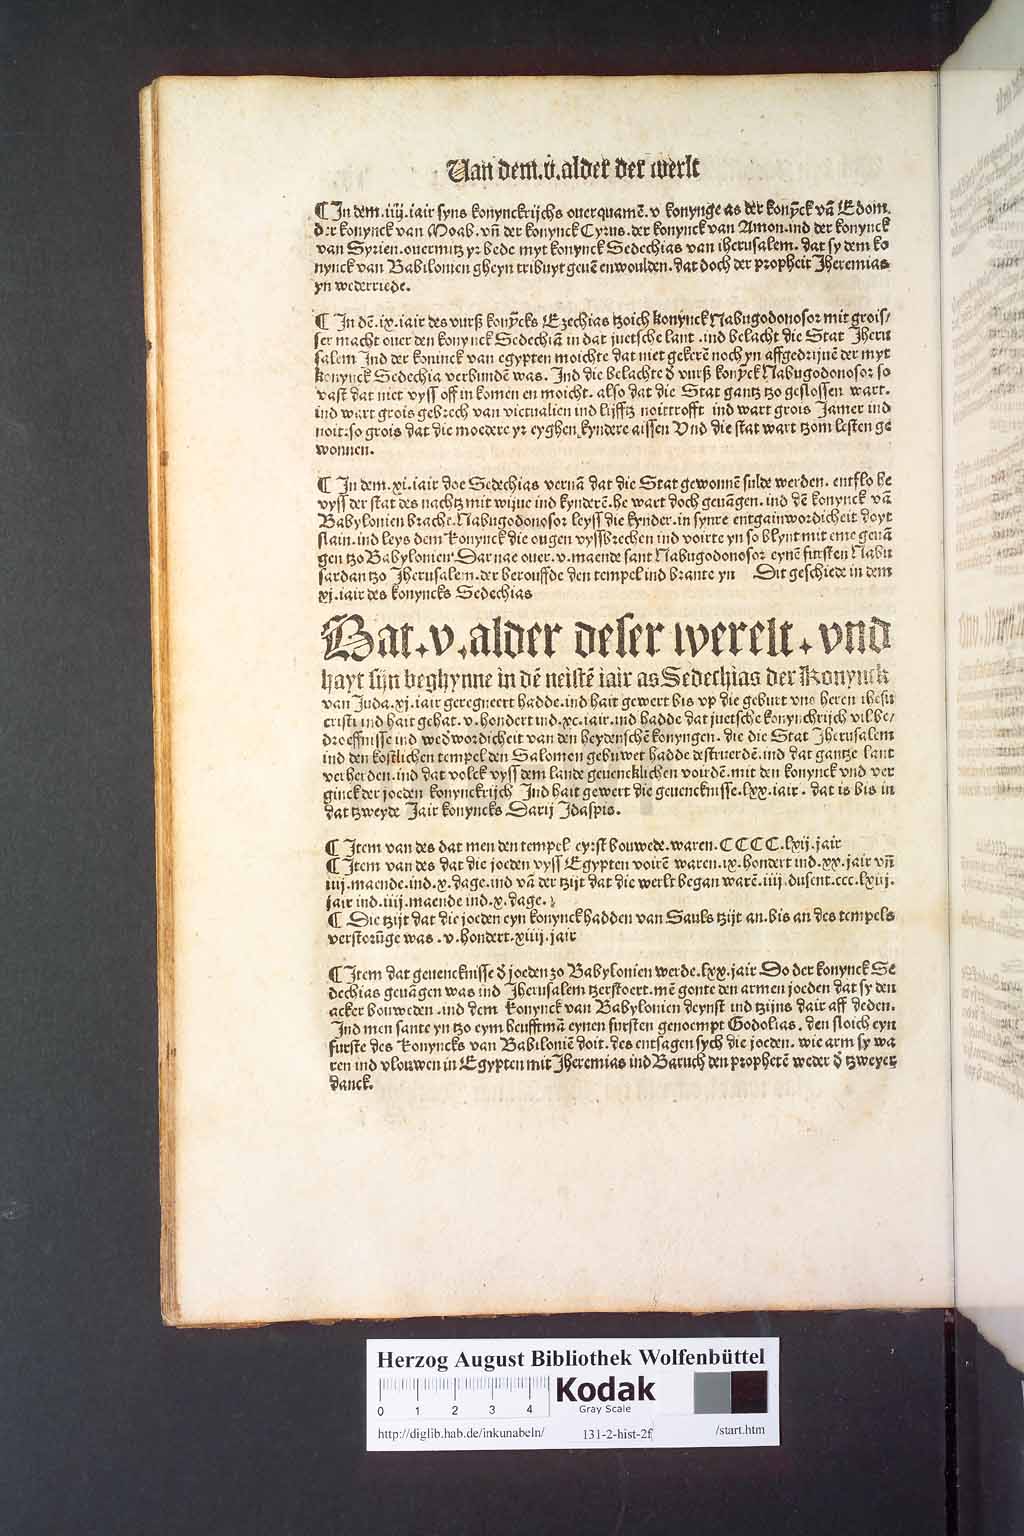 Uan dem.v̈.alder der werlt
¶ In dem.iiij.iair syns konynckrijchs ouerquamē.v konynge as der konȳck vā Edom.
der konynck van Moab. vn̄ der konynck Cyrus.der konynck van Amon.ind der konynck
van Syrien.ouermitz yr bede myt konynck Sedechias van iherusalem. dat sy dem ko
nynck van Babilonien gheyn tribuyt geuē enwoulden.dat doch der propheit Iheremias
yn wederriede.
¶ In dē.ix.iair des vurß konȳcks Ezechias tzoich konynck Nabugodonosor mit grois/
ser macht ouer den konynck Sedechiā in dat juetsche lant .ind belacht die Stat Iheru
salem Ind der koninck van egypten moichte dat niet gekerē noch yn affgedrijuē der myt
konynck Sedechia verbundē was. Ind die belachte d vurß konȳck Nabugodonosor so
vast dat niet vyss off in komen en moicht. also dat die Stat gantz tzo geslossen wart.
ind wart grois gebrech van victualien ind lijfftz noittrofft ind wart grois Jamer ind
noit:so grois dat die moedere yr eyghen kyndere aissen Vnd die stat wart tzom lesten ge
wonnen.
¶ In dem.xi.iair doe Sedechias vernā dat die Stat gewonnē sulde werden. entflo he
vyss der stat des nachtz mit wijue ind kynderē.he wart doch geuāgen.ind dē konynck vā
Babylonien brache.Nabugodonosor leyss die kynder.in synre entgainwordicheit doyt
slain.ind leys dem konynck die ougen vyssbrechen ind voirte yn so blynt mit eme geuā
gen tzo Babylonien Dar nae ouer.v.maende sant Nabugodonosor eynē fursten Nabu
sardan tzo Iherusalem.der berouffde den tempel ind brante yn Dit geschiede in dem
xj.iair des konyncks Sedechias
Dat.v.alder deser werelt.vnd
hayt sijn beghynne in dē neistē iair as Sedechias der Konynck
van Juda.xj.iair geregneert hadde.ind hait gewert bis vp die geburt vns heren ihesu
cristi ind hait gehat.v.hondert ind.xc.iair.ind hadde dat juetsche konynchrijch vil be/
droeffnisse ind wedwordicheit van den heydenschē konyngen. die die Stat Iherusalem
ind den kostlichen tempel den Salomen gebuwet hadde destruerdē.ind dat gantze lant
verherden.ind dat volck vyss dem lande geuencklichen voirdē.mit den konynck vnd ver
ginck der joeden konynckrijch Ind hait gewert die geuencknisse.lxx.iair. dat is bis in
dat tzweyde Jair konyncks Darij Idaspis.
¶ Item van des dat men den tempel eyrst bouwede.waren.CCCC.lxij.jair
¶ Item van des dat die joeden vyss Egypten voirē waren.ix.hondert ind.xx.jair vn̄
iiij.maende.ind.x.dage.ind vā der tzijt dat die werlt began warē.iiij.dusent.ccc.lxiij.
jair ind.iiij.maende ind.x.dage.
¶ Die tzijt dat die joeden eyn konynck hadden van Sauls tzijt an.bis an des tempels
verstorūge was .v.hondert.xiiij.jair
¶ Item dat geuencknisse d joeden zo Babylonien werde.lxx.jair Do der konynck Se
dechias geuāgen was ind Iherusalem tzerstoert.mē gonte den armen joeden dat sy den
acker bouweden .ind dem konynck van Babylonien deynst ind tzijns dair aff deden.
Ind men sante yn tzo eym heufftmā eynen fursten genoempt Godolias. den sloich eyn
furste des konyncks van Babiloniē doit.des entsagen sych die joeden. wie arm sy wa
ren ind vlouwen in Egypten mit Iheremias ind Baruch den prophetē weder d tzweyer
danck.
Herzog August Bibliothek Wolfenbüttel
0 1 2 3 4
Kodak
Gray Scale
http://diglib.hab.de/inkunabeln/ 131-2-hist-2f /start.htm